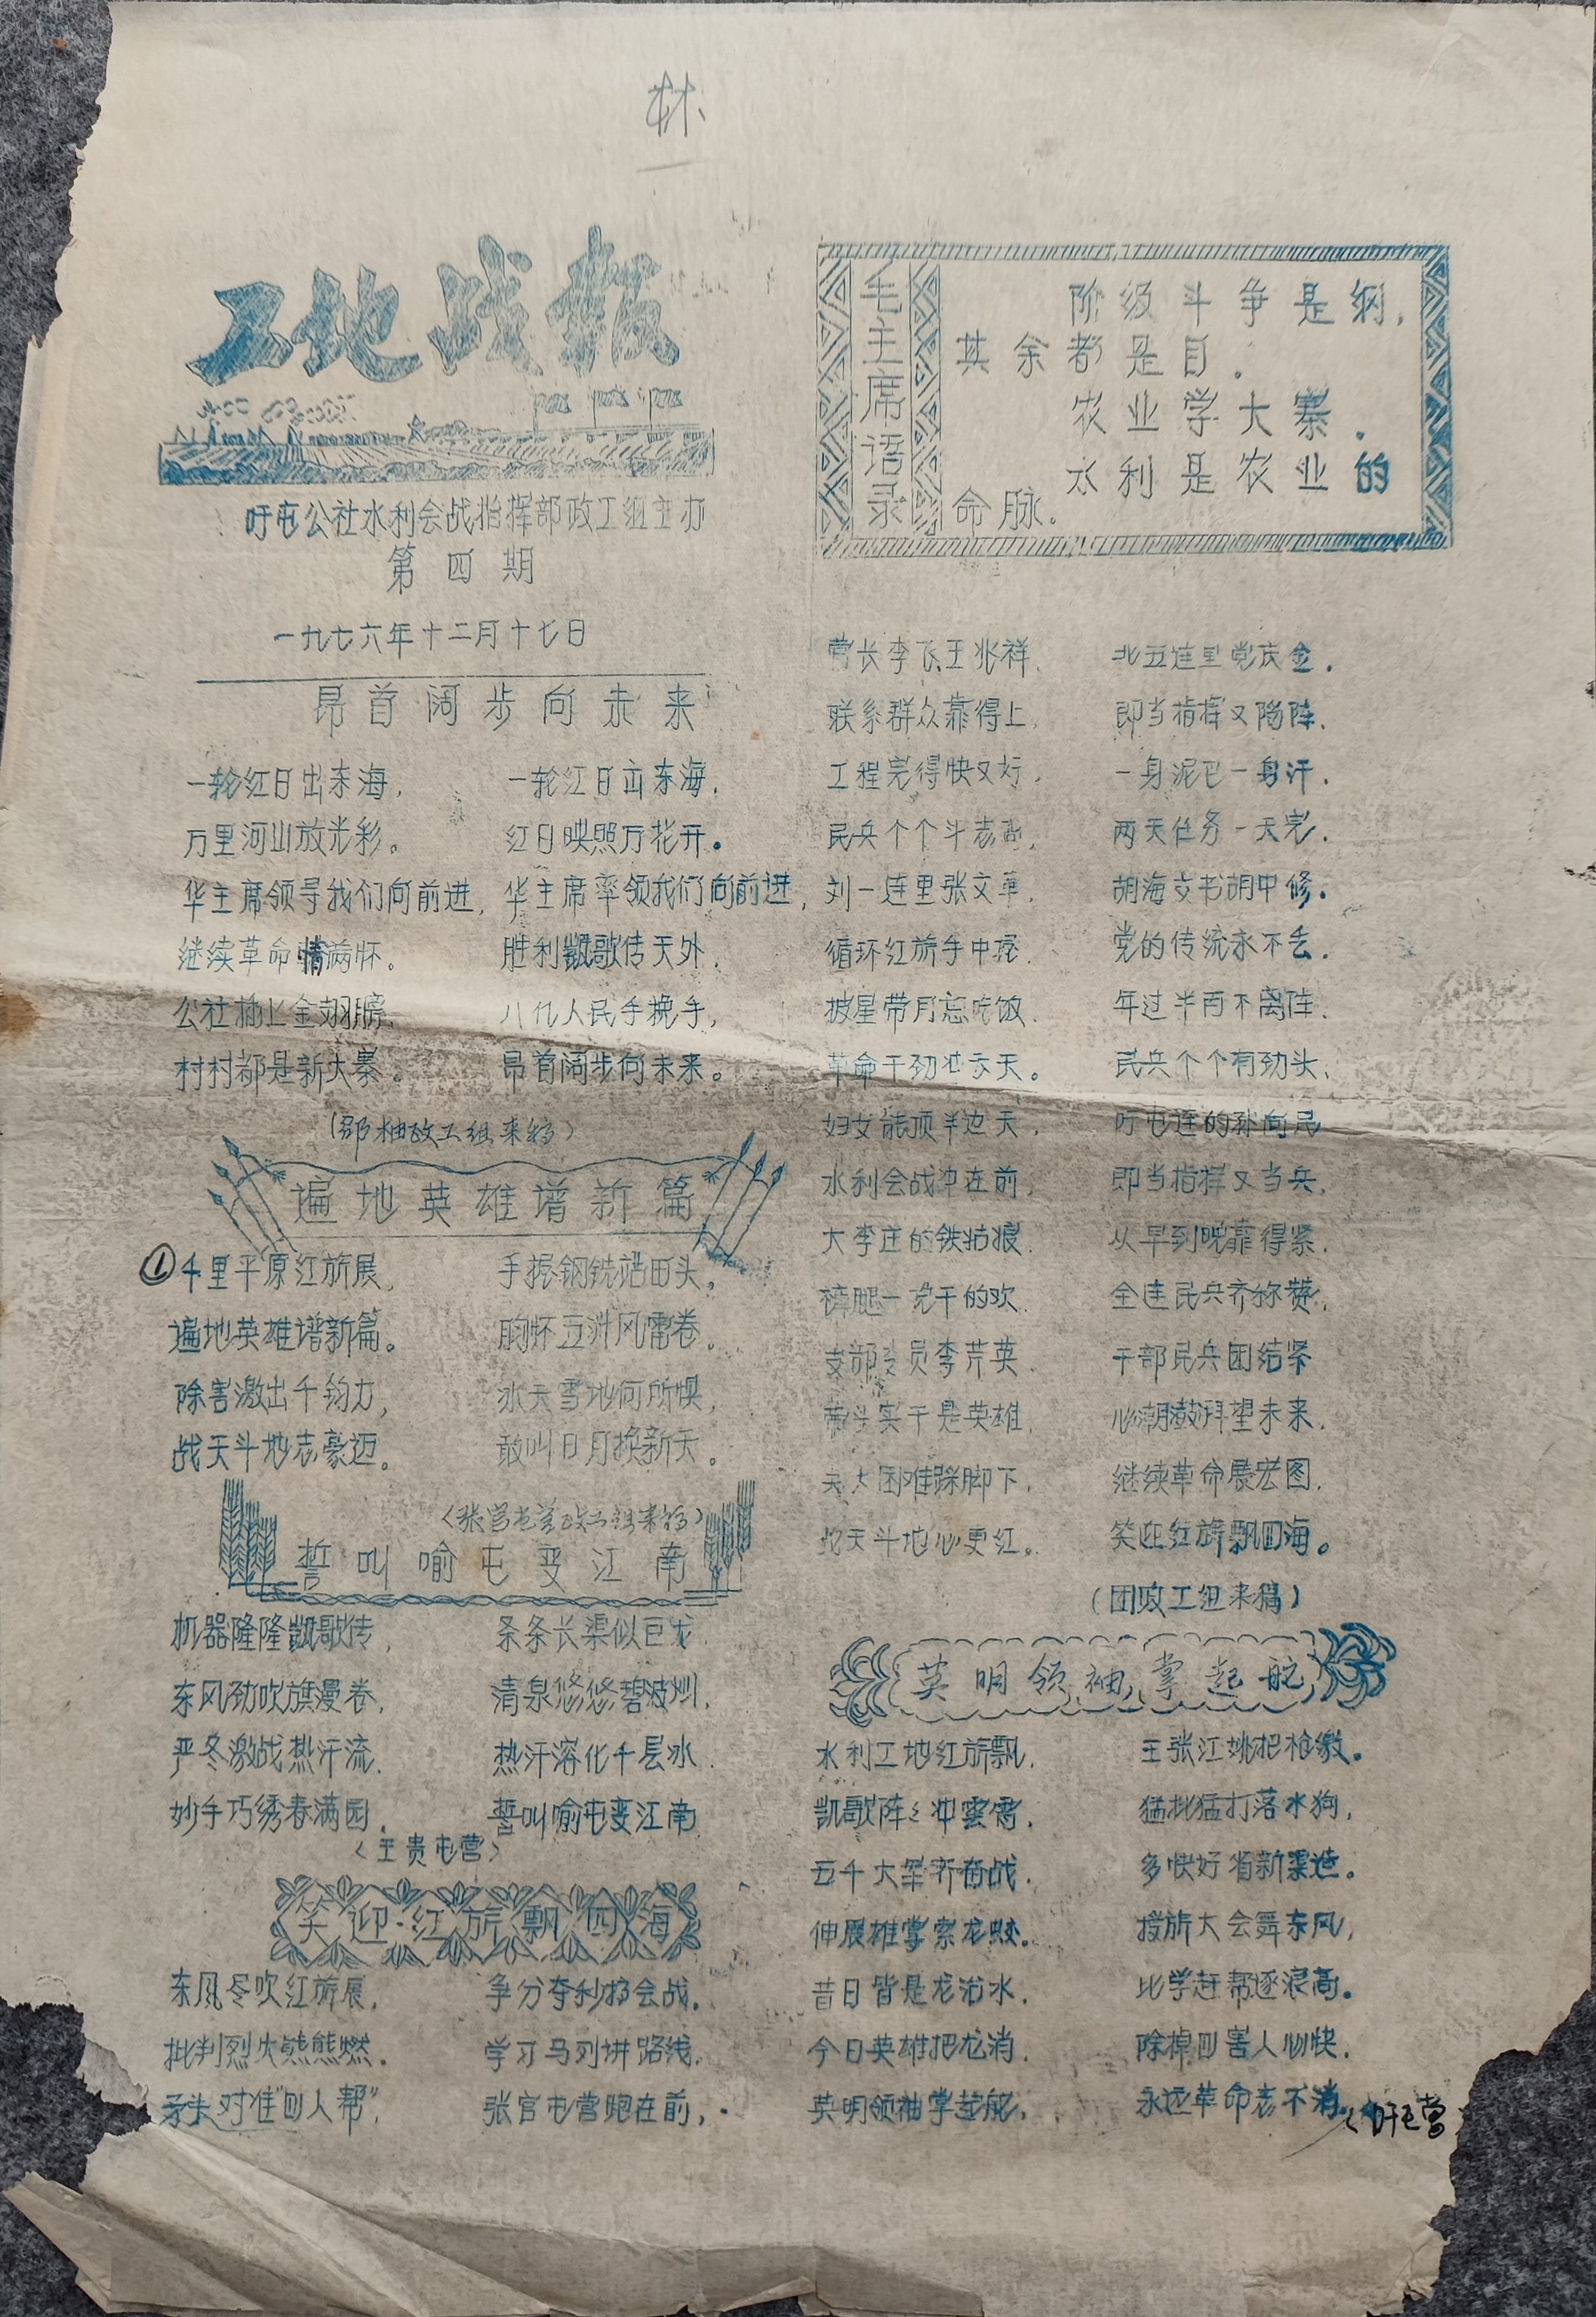 林
工地战报
吁屯公社水利会战指挥部政工组主办
第四期
一九七六年十二月十七日
毛主席语录
阶级斗争是纲，
其余都是目。
农业学大寨。
水利是农业的
命脉。
昂首阔步向未来
一轮红日出东海，
万里河山放光彩。
华主席领导我们向前进，
继续革命情满怀。
公社插上金翅膀，
村村都是新大寨。
一轮红日出东海，
红日映照万花开。
华主席率领我们向前进，
胜利凯歌传天外，
八亿人民手挽手，
昂首阔步向未来。
政工组来稿）
遍地英雄谱新篇
①千里平原红旗展，
遍地英雄谱新篇。
除害激出千钧力，
战天斗地志豪迈。
手握钢铣站田头，
胸怀五洲风雷卷。
冰天雪地何所惧，
敢叫日月换新天。
〈张官屯营政工组来稿〉
誓叫喻屯变江南
机器隆隆凯歌传，
东风劲吹旗漫卷，
严冬激战热汗流，
妙手巧绣春满园。
条条长渠似巨龙
清泉悠悠碧波
热汗溶化千层冰
誓叫喻屯变江南
〈王贵屯营〉
笑迎红旗飘四海
东风冬吹红旗展，
批判烈火熊熊燃。
矛头对准“四人帮”，
争分夺秒招会战。
学习马列讲路线，
张官屯营跑在前，
营长李飞王兆祥，
联系群众靠得上，
工程完得快又好，
民兵个个斗志高，
刘一连里张文革，
循环红旗手中握，
披星带月忘吃饭，
革命干劲冲云天。
妇女能顶半边天，
水利会战冲在前，
大李庄的铁姑娘
干的欢
支部委员李芹英，
带头实干是英雄，
天大困难踩脚下，
战天斗地心更红。
北五连里党庆金，
即当指挥又陷阵，
一身泥巴一身汗，
两天任务一天完，
胡海支书胡中修。
党的传统永不丢，
年过半百不离阵，
民兵个个有劲头，
吁屯连的孙向民
即当指挥又当兵，
从早到晚靠得紧，
全连民兵齐称赞，
干部民兵团结紧
心潮澎湃望未来，
继续革命展宏图，
笑迎红旗飘四海。
（团政工组来稿）
英明领袖掌起舵
水利工地红旗飘，
凯歌阵々冲雲霄，
五千大军齐奋战，
伸展雄掌索龙蛟。
昔日皆是龙治水，
今日英雄把龙消，
英明领袖掌起舵，
王张江姚把枪缴。
猛批猛打落水狗，
多快好省新渠造。
授旗大会舞东风，
比学赶帮逐浪高。
除掉四害人心快，
永远革命志不消。〈吁屯营